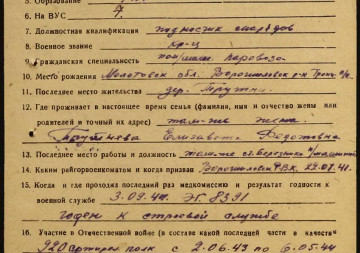 5. Образование
6. На ВУС 7.
7. Должностная квалификация подносчик снарядов
8. Военное звание кр-ц
9. Гражданская специальность пом/маш. паровоза
10. Место рождения Молотовск обл. Ворошиловск р-н
11. Последнее место жительства дер.
12. Где проживает в настоящее время семья (фамилия, имя и отчество жены или
родителей и точный их адрес) там-же жена
Елизавета Федотовна
13. Последнее место работы и должность
14. Каким рейгорвоенкоматом и когда призван Ворошилов РВК, 22.07.41.
15. Когда и где проходил последний раз медкомиссию и результат годности к
военной службе 3.09.44. ЭГ. 8391
годен к строевой службе
16. Участие в Отечественной войне (в составе какой последней части и в качеств
920 артирел полк с 2.06.43 по 6.05.44